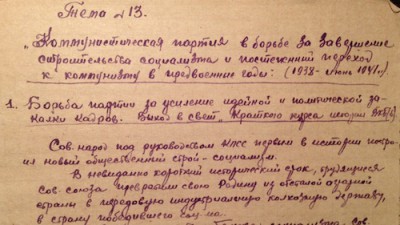 Тема №13.
"Коммунистическая партия в борьбе за завершение
строительства социализма и постепенный переход
к коммунизму в предвоенные годы: (1938 - июнь 1941г.)
1. Борьба партии за усиление идейной и политической за-
калки кадров. Выход в свет "Краткого курса истории ВКП(б)
Сов. народ под руководством КПСС первым в истории постро-
ил новый общественный строй - социализм.
В невиданно короткий исторический срок, трудящиеся
Сов. Союза превратили свою Родину из отсталой аграрной
страны в передовую индустриально колхозную державу,
в страну победившего соц-ма.
Сов.